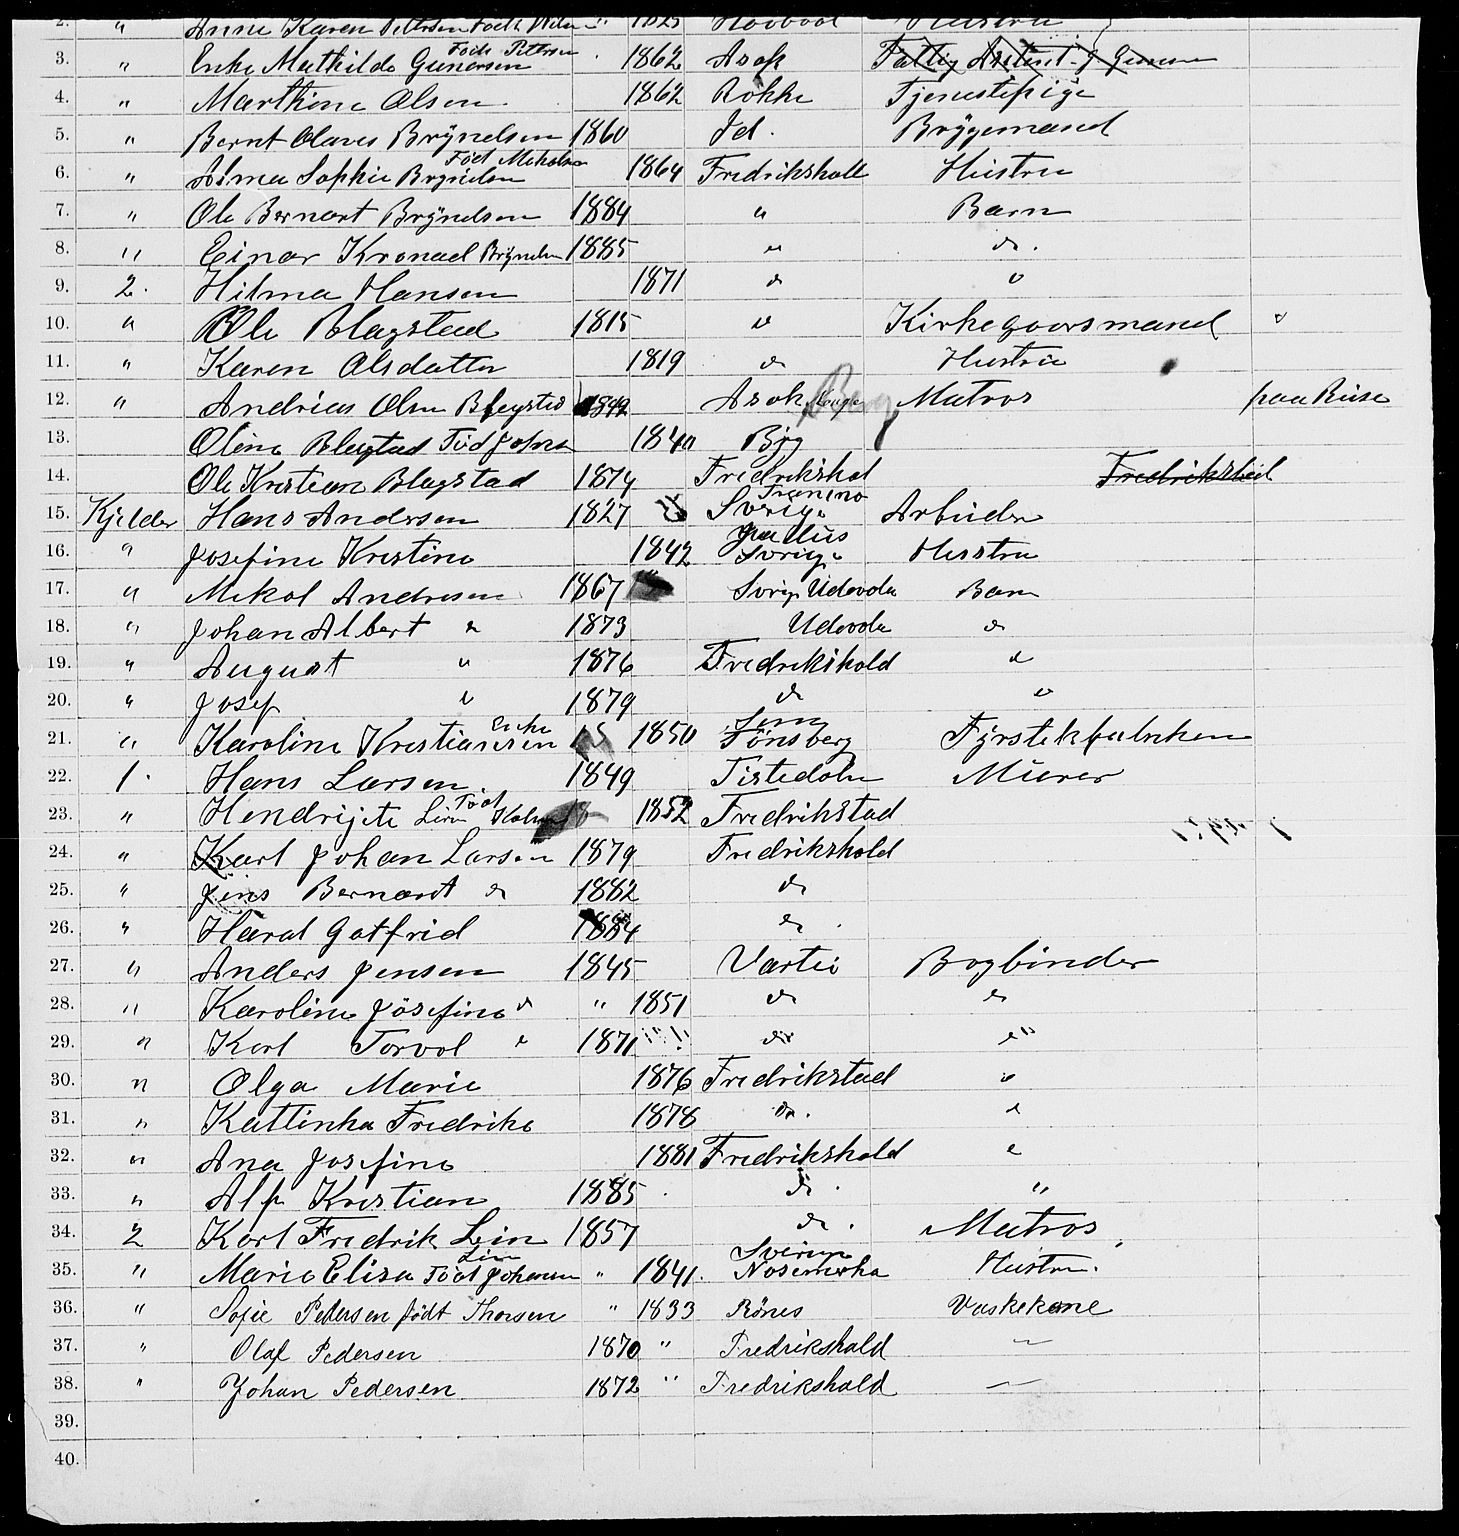 2. " Anna Karen Pettersen Født " 1825 Hustru
3. " Enke Mathilde Gunersen Føde Pettersen 1862 Asak Fattig
4. " Marthine Olsen 1862 Rokke Tjenestepige
5. " Bernt Olaves Brynelsen 1860 Id. Bryggemand
6. " Alma Sophie Brynielsen Född Mikalsen 1864 Fredrikshall Hustru
7. " Ole Bernart Brynelsen 1884 " Barn
8. " Einar Kronad Brynelsen 1885 " do.
9. 2. Hilma Hansen 1871 do "
10. " Ole Blagstad 1815 " Kirkegaarsmand "
11. " Karen Olsdatter 1819 do Hustru
12. " Andrias Olsn Blegstad 1842 Asak Berg Matros paa Reise
13. Oline Blegstad Född Johns 1840
14. Ole Kristian Blagstad 1874 Fredrikshal Fredrikshal
15. Kjelder Hans Andersen 1827 Sverige Arbeider
16. " Josefine Kristine 1842 Sverige Hustru
17. " Mikal Andresen 1867 " Sverig Udevda Barn
18. " Johan Albert " 1873 Udevda do
19. " August " 1876 Fredrikshold "
20. " Josef " 1879 do "
21. " Karoline Kristiansen Enke 1850 Sem Tønsberg Fyrstikfabriken
22. 1. Hans Larsen 1849 Tistedalen Murer
23. " Hendrijete Født 1852 Fredrikstad
24. " Karl Johan Larsen 1879 Fredrikshold
25. " Jens Bernardt do 1882 do
26. " Haral Gotfrid 1884 do.
27. " Anders Jensen 1845 Vartei Bogbinder
28. " Karoline Josefine do " 1851 do do
29. " Karl Torvol " 1871 do "
30. " Olga Marie 1876 Fredrikstad "
31. " Kattinka Fredrike 1878 do. "
32. " Ana Josefine 1881 Fredrikshald "
33. " Alf Kristian 1885 do. "
34. 2 Karl Fredrik Lin 1857 do. Matros
35. " Marie Elisa Lin Født Johansen " 1841. Sverige Nosemarka Hustru.
36. " Sofie Pedersen født Thorsen " 1833 Rönes Vaskekone
37. " Olaf Pedersen 1870 " Fredrikshald —
38. " Johan Pedersen 1872 " Fredrikshald —
39.
40.